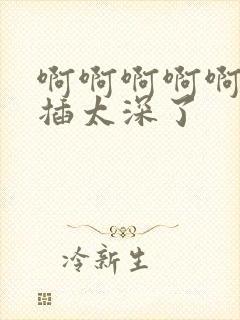 啊啊啊啊啊
插太深了
冷新生